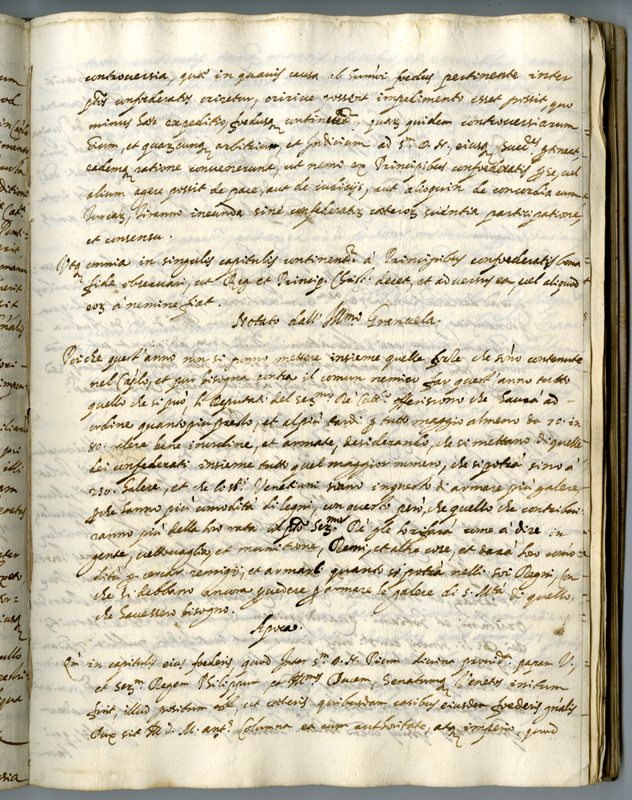 controversia, quae in quavis causa ad huius foedus pertinente inter
confoederatos oriretur, oririve posset impedimento esset possit, quo
minus haec expeditio, foedusq continuetur. quare quidem controversiarum
arbitrium, et Judicium ad S.m D. N. eiusq
eademq ratione convenerunt, ut nemo ex Principibus confoederatis per se, vel
alium agere possit de pace, aut de inducijs, aut alioquin de concordia cum
Turcar. Tiranno ineunda sine confederator. caeteror. scientia participatione,
et consensu.
Utq omnia in singulis capitulis continent.r à Principibus confoederatis bona
fide observari, ut Reg. et Princip. Christ. decet, et adversus ea, vel aliquid
eor. à nemine fiat.
Notato dall' Ill.mo Granvela.
Poiche quest' anno non si ponno mettere insieme quelle forze che sono contenute
nel Cap.lo, et pur bisogna contra il comun nemico far quest' anno tutto
quello che si può, li Deputati del ser.mo Re Catt.co offeriscono che havrà ad
ordine quanto più presto, et al più tardi p tutto maggio almeno da 70. in
80. galere bene in ordine, et armate, desiderando, che si mettano di quelle
dei confederati insieme tutto quel maggior numero, che si potrà sino à
250. Galere, et che li ss.ri Venetiani siano in questo di armare più galere,
p che hanno più comodità di legni, con questo però, che quello che contribui-
ranno più della loro rata il p.to Ser.mo Re gle lo rifarà come à dire in
gente, vettovaglia, et munitione, Remi, et altre cose, et darà loro como-
dità p cercar remigij, et armarli quando si potrà nelli soi Regni, con
che si debbano ancora provedere p armare le galere di S. M.tà di quello,
che havessero bisogno.
Apoca.
in capitulis eius foederis, quod Inter S.m D. N. Pium divina provid.a papam V.
et Ser.m Regem Philippum, ac Ill.mos Ducem, Senatumq Venetos initum
fuit, illud positum est, ut caeteris quibusdam casibus eiusdem foederis gn̄alis
Dux sit Ill. D. M. Ant.s Columna et cum authoritate, atq imperio, quod